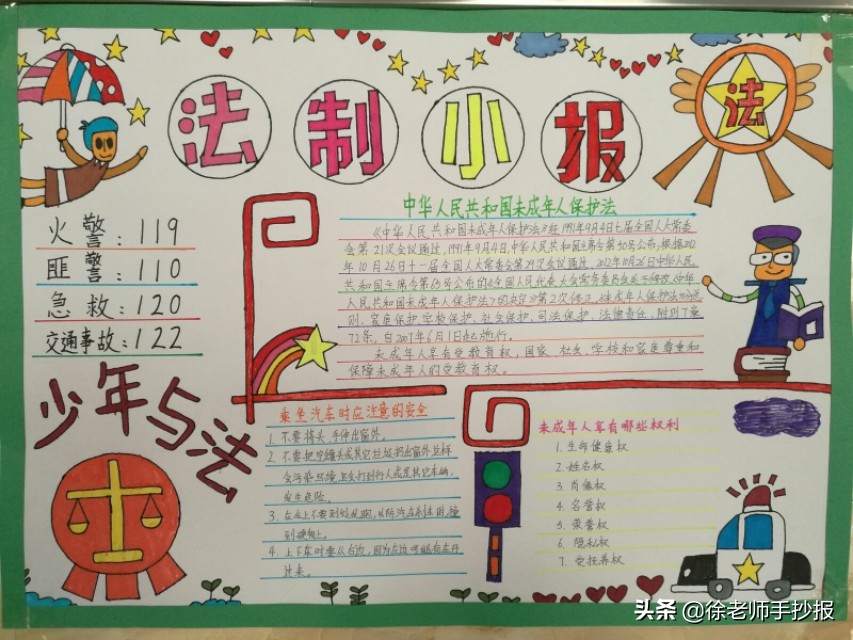 法制小报
法
火警：119
匪警：110
急救：120
交通事故：122
少年与法
中华人民共和国未成年人保护法
《中华人民共和国未成年人保护法》经1991年9月4日七届全国人大常委
会第21次会议通过，1991年9月4日中华人民共和国主席令第50号公布；根据201
2年10月26日十一届全国人大常委会第29次会议通过，2012年10月26日中华人民
共和国主席令第65号公布的《全国人民代表大会常务委员会关于修改《中华
人民共和国未成年人保护法》的决定》第2次修正。《未成年人保护法》分总
则、家庭保护、学校保护、社会保护、司法保护、法律责任、附则7章
72条，自2007年6月1日起施行。
未成年人享有受教育权，国家、社会、学校和家庭尊重和
保障未成年人的受教育权。
乘坐汽车时应注意的安全
1、不要将头、手伸出窗外。
2、不要把空罐头或其它垃圾扔出窗外，这样
会污染环境，且会打到行人或是其它车辆，
发生危险。
3、在车上不要到处
到硬物上。
4、上下车时要从右边，因为左边可能有车开
过来。
未成年人享有哪些权利
1. 生命健康权
2. 姓名权
3. 肖像权
4. 名誉权
5. 荣誉权
6. 隐私权
7. 受抚养权
头条 @徐老师手抄报